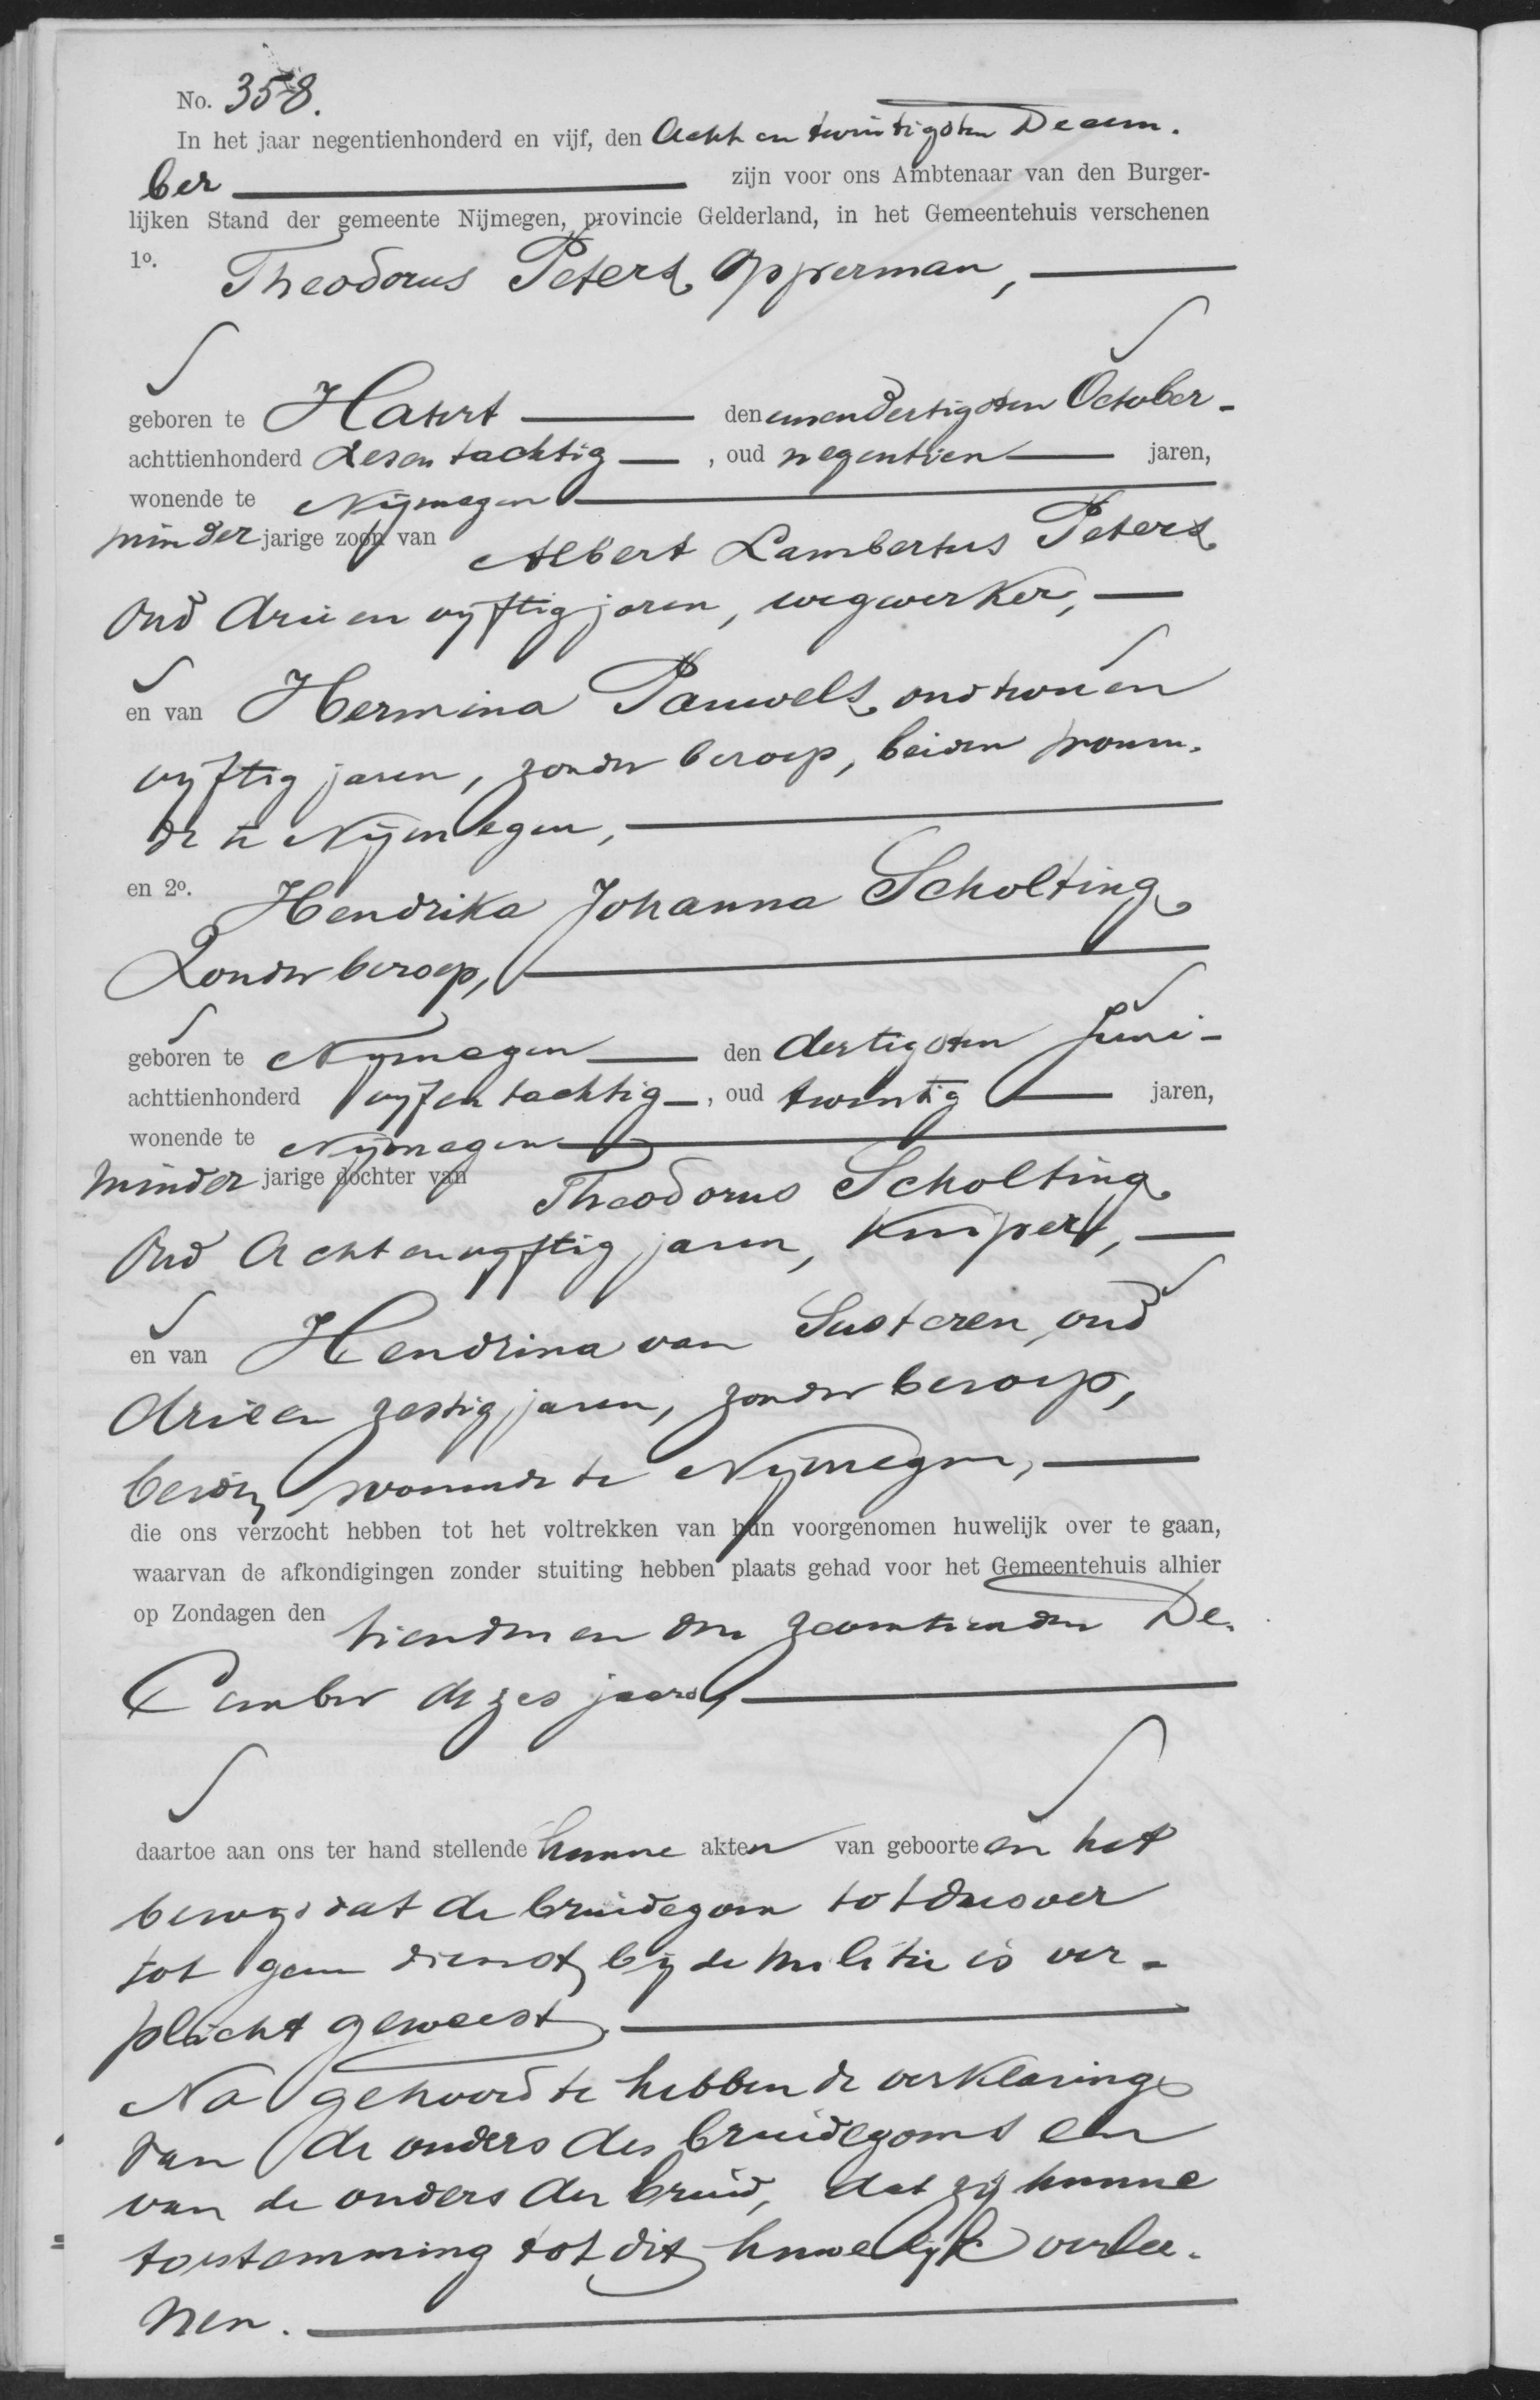 No. 358.
In het jaar negentienhonderd en vijf, den Acht en twintigsten Decem.
ber zijn voor ons Ambtenaar van den Burger-
lijken Stand der gemeente Nijmegen, provincie Gelderland, in het Gemeentehuis verschenen
1o. Theodorus Peters, Opperman,
geboren te Hatert den eenendertigsten October
achttienhonderd zesentachtig, oud negentien jaren,
wonende te Nijmegen
minderjarige zoon van Albert Lambertus Peters,
oud drie en vijftig jaren, wegwerker,
en van Hermina Pauwels, oud twee en
vijftig jaren, zonder beroep, beiden wonen-
de te Nijmegen,
en 2o. Hendrika Johanna Scholting,
Zonder beroep,
geboren te Nijmegen den dertigsten Juni
achttienhonderd vijfentachtig, oud twintig jaren,
wonende te Nijmegen
minderjarige dochter van Theodorus Scholting,
oud Acht en vijftig jaren, Kuiper,
en van Hendrina van Susteren, oud
drie en zestig jaren, zonder beroep,
beiden wonende te Nijmegen,
die ons verzocht hebben tot het voltrekken van hun voorgenomen huwelijk over te gaan,
waarvan de afkondigingen zonder stuiting hebben plaats gehad voor het Gemeentehuis alhier
op Zondagen den tienden en den zeventienden De-
cember dezes jaars,
daartoe aan ons ter hand stellende hunne akten van geboorte en het
bewijs dat de bruidegom tot dusver
tot geen dienst bij de militie is ver-
plicht geweest.
Na gehoord te hebben de verklaring
van de ouders des bruidegoms en
van de ouders der bruid, dat zij hunne
toestemming tot dit huwelijk verlee-
nen.